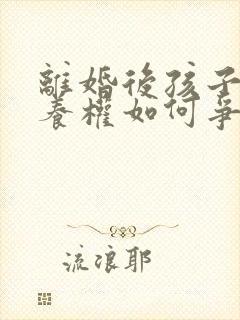 離婚後孩子
養權如何爭
流浪耶